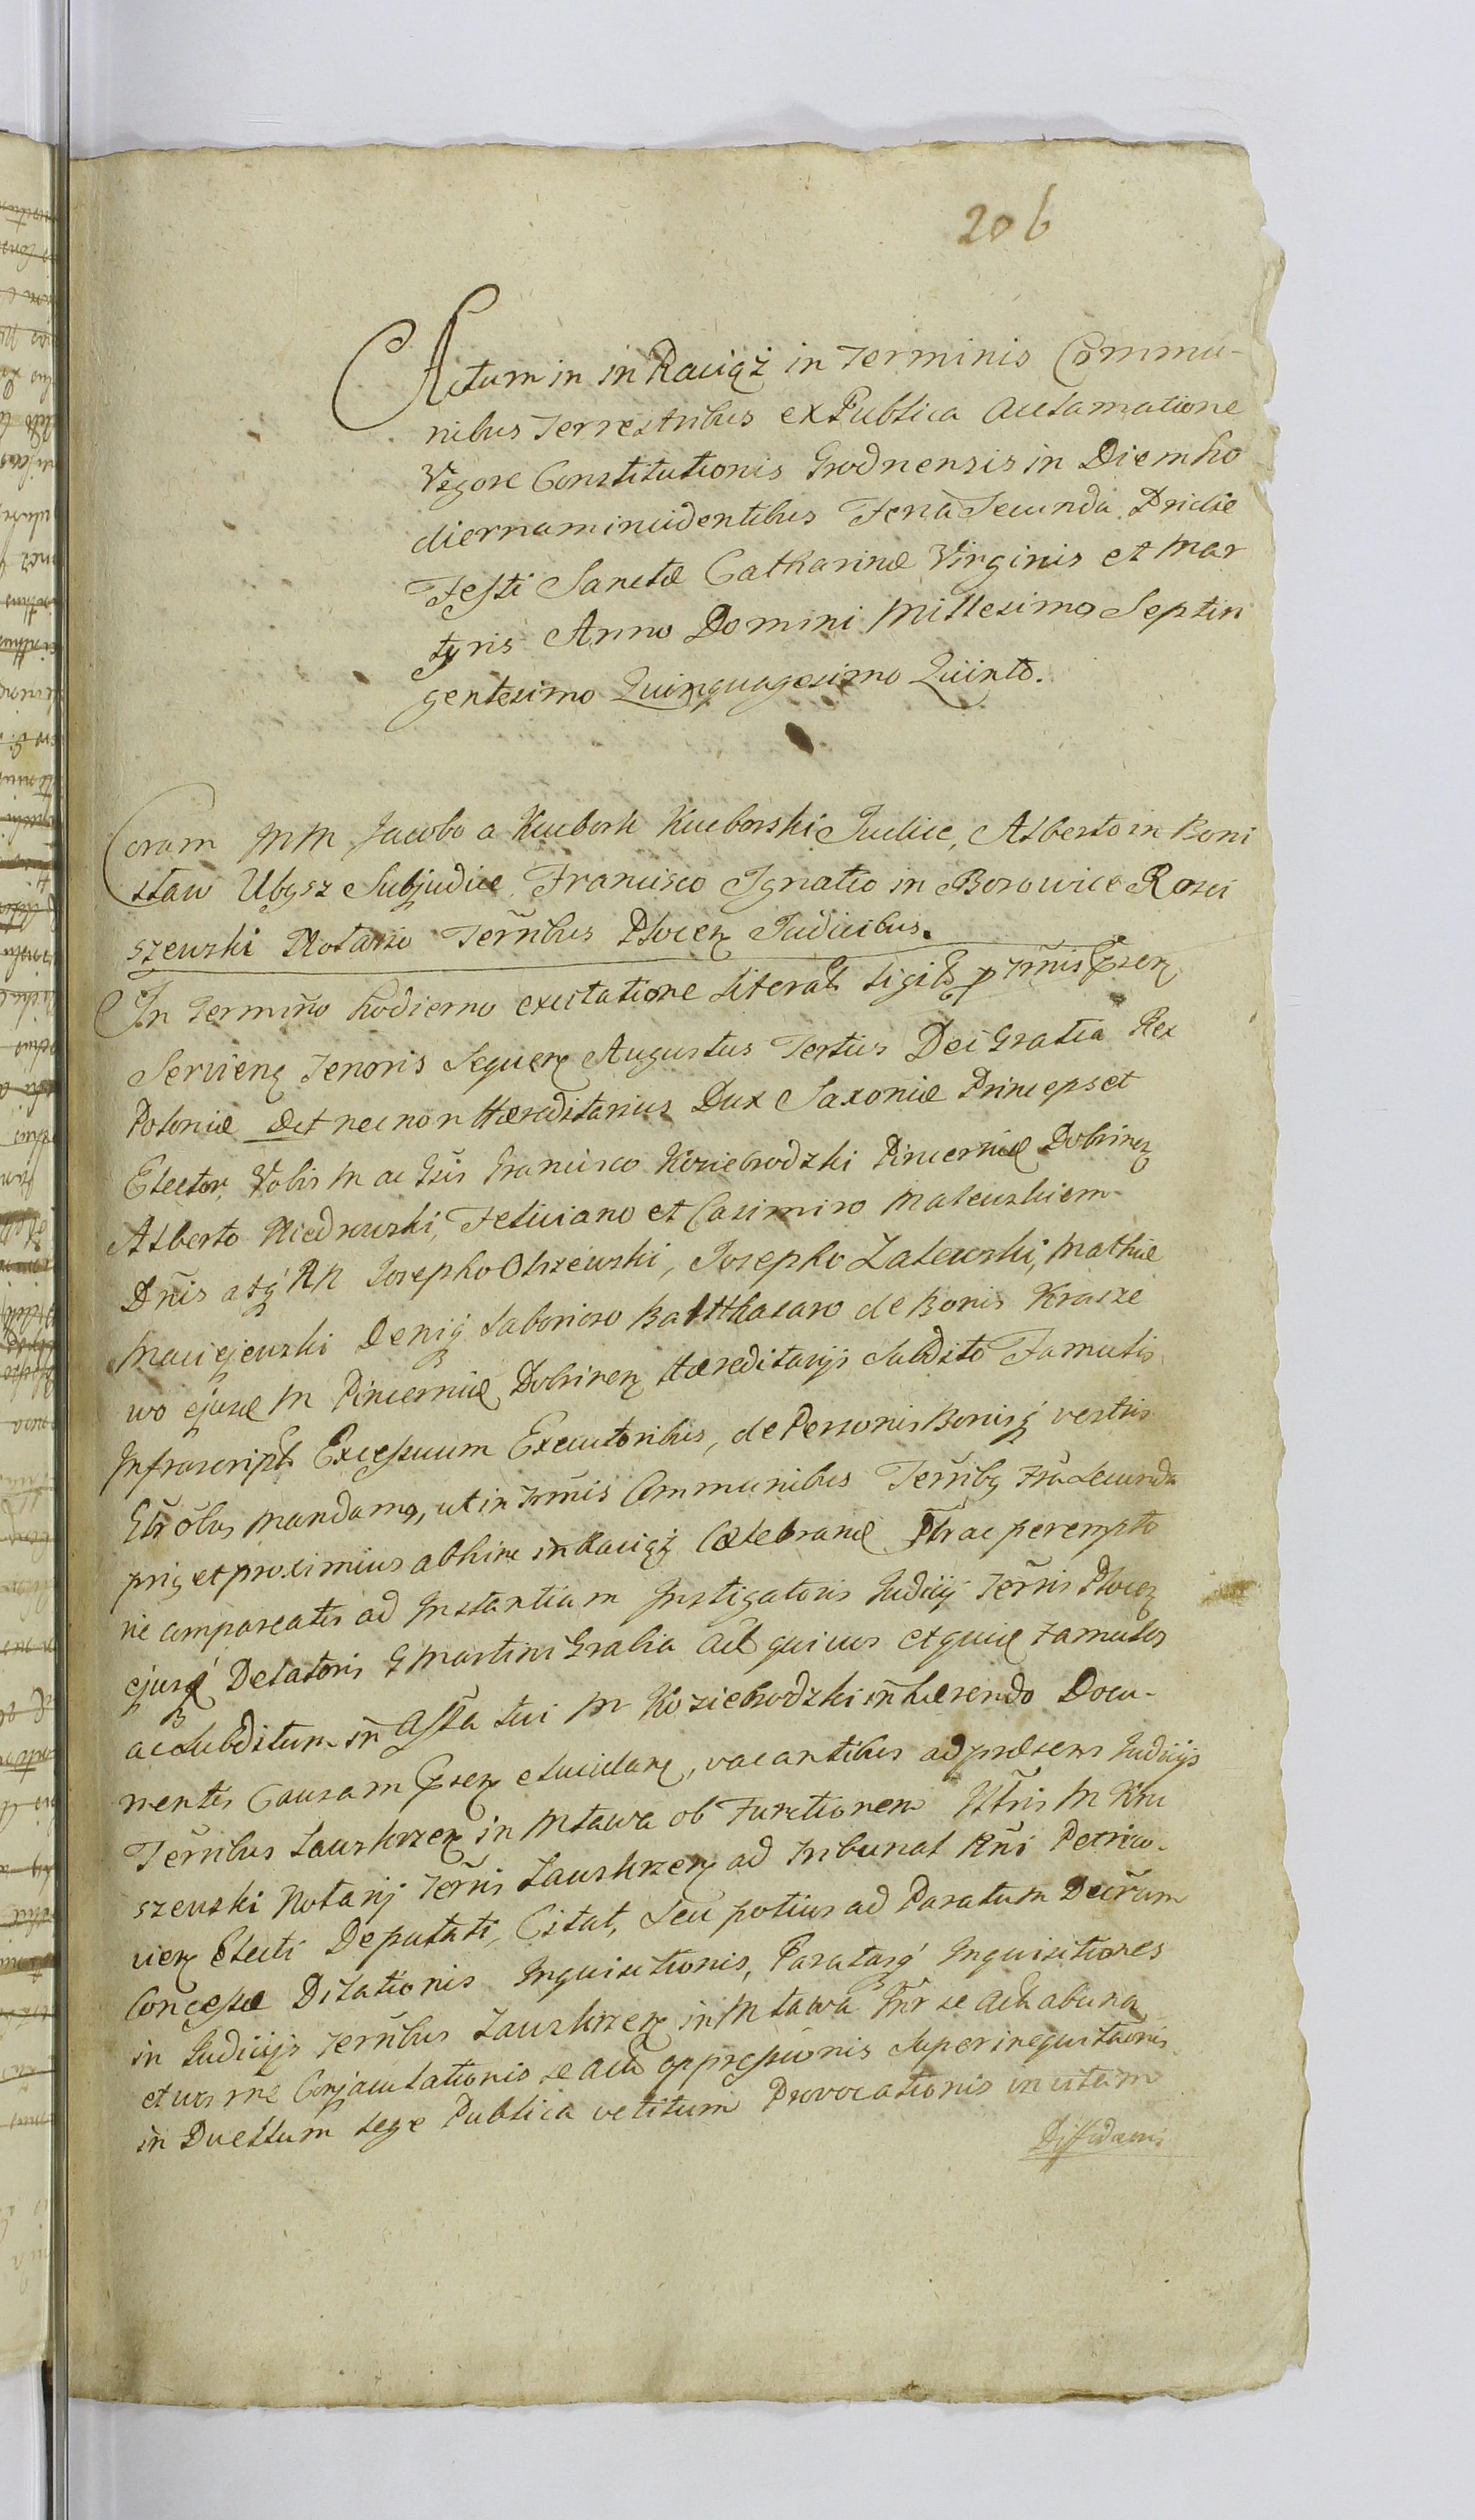 206
Actum in in Raciąż in Terminis Commu-
nibus Terrestribus ex Publica Acclamatione
Vigore Constitutionis Grodnensis in Diem ho
diernam incidentibus Feria Secunda Pridie
Festi Sanctæ Catharinæ Virginis et Mar
tyris Anno Domini Millesimo Septin
gentesimo Quinquagesimo Quinto.
Coram MM Jacobo a Kucbork Kucborski Judice, Alberto in Boni
sław Ubysz Subjudice Francisco Ignatio in Borowice Rosci
szewski Notario Terribus Plocen Judicibus.
In Termino hodierno ex citatione Literali Sigil p Trmis Pnsen
Servien Tenoris Sequen Augustus Tertius Dei Gratia Rex
Poloniæ Det nec non Hæreditarius Dux Saxoniæ Princeps et
Elector, Vobis M ac Gsis Francisco Koziebrodzki Pincernæ Dobrinen
Alberto Niedrowski, Feliciano et Casimiro Malewskiem-
Dnis atq RR Josepho Olszewski, Josepho Zalewski, Mathiæ
Maciejewski Deniq Laborioso Balthasaro de Bonis Krasze
wo ejusd M Pincernæ Dobrinen Hæreditarijs Subdito Famulis
Infrascript Excessuum Executoribus, de Personis Bonisq vestris
Gtr olbs Mandamq, ut in Trmis Communibus Terribq Fra Secunda
priq et proximius abhinc in Raciąż Celebrand Ptr ac perempto
rie compareatis ad Instantiam Instigatoris Judicij Terris Plocen
ejusq Delatoris G Martini Gralia Act qui vos et quid Famulos
ac Subditum in Assta tui M Koziebrodzki inhærendo Docu-
mentis Causam Pnsen elucidan, vacantibus ad præsens Judicijs
Terribus Zauskrzen in Mława ob Functionem Gsis M Kru
szewski Notarij Terris Zauskrzen ad Tribunal Rni Petrico-
vien Electi Deputati, Citat, Seu potius ad Paratum Decrum
Concessæ Dilationis Inquisitionis, Paratasq Inquisitiones
in Judicijs Terribus Zauskrzen in Mława
et vos me Conjaculationis se act oppressionis Superinequitaonis
in Duellum Lege Publica vetitum Provocationis
Diffidaonis